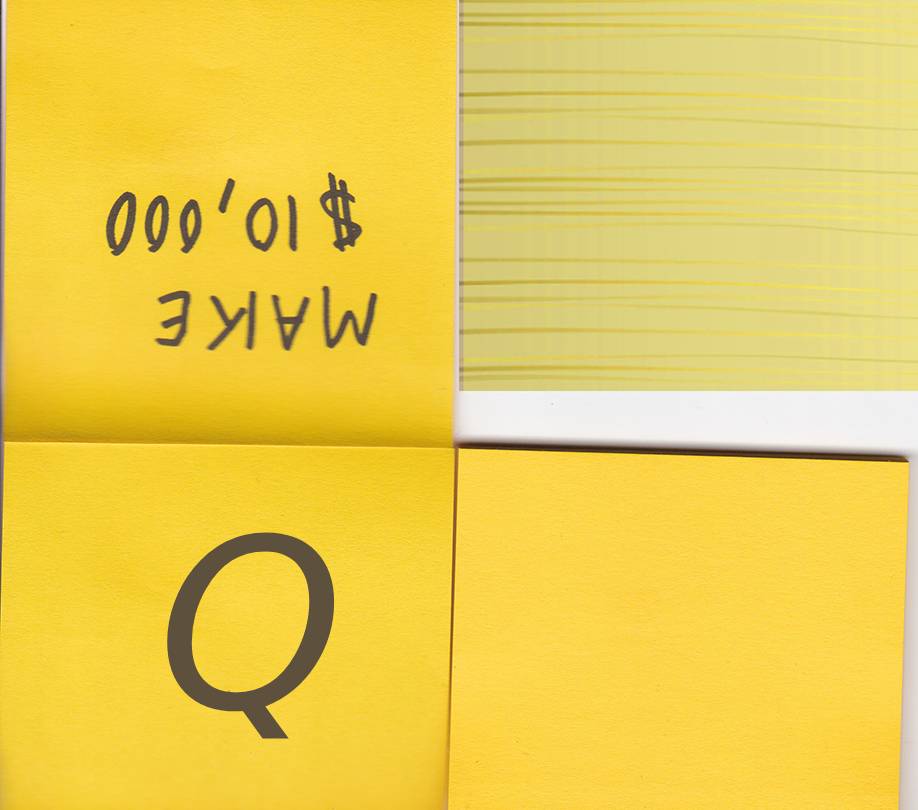 MAKE
$10,000
Q